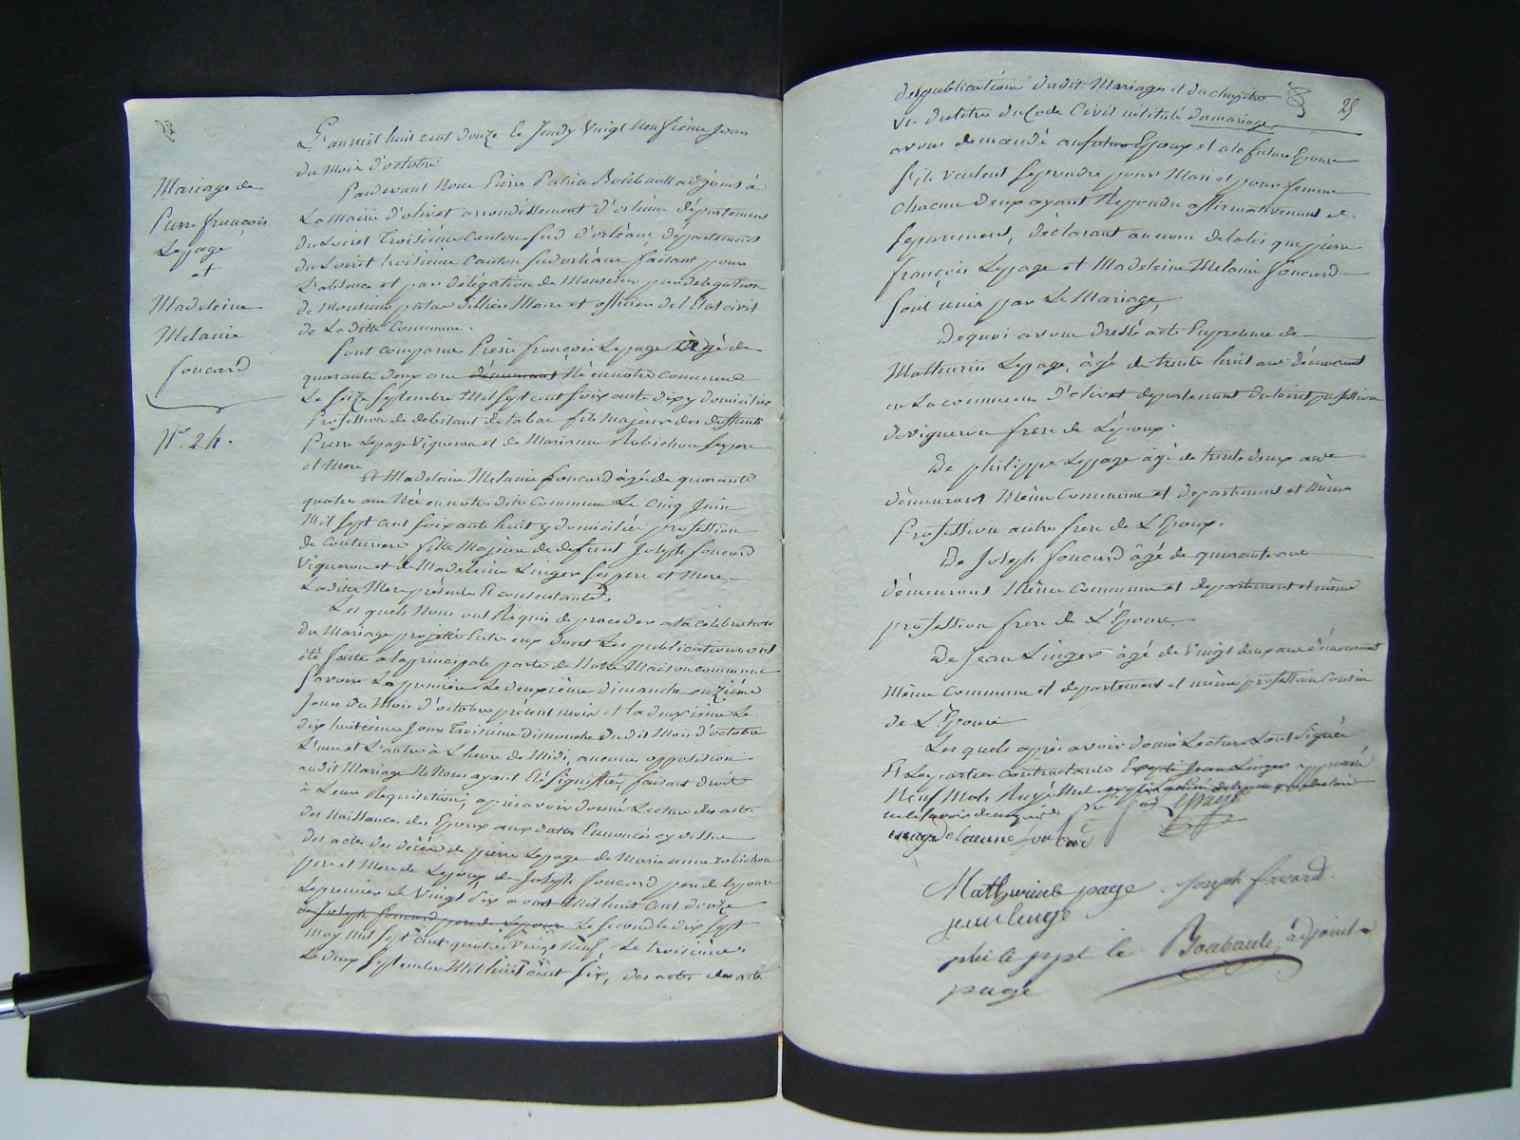 Mariage de
Pierre françois
Lepage
et
Madeleine
Melanie
foucard
N.º 24.
L'an mil huit cent douze le Jeudy Vingt neufième Jour
du Mois d'octobre
Pardevant Nous Pierre Boisbault adjoint à
La Mairie d'olivet arrondissement d'orléans département
du Loiret Troisième Canton sud d'orléans, département
du Loiret troisième Canton sud orléans faisant pour
L'absence et par délégation de Monsieur par délégation
de Monsieur Maire et officier de l'Etat civil
de Laditte Commune.
sont comparus Pierre françois Lepage âgé de
quarante deux ans demeurant Né en notre Commune
Le seize Septembre Mil sept cent soix ante dix y domicilié
Profession de debitant de tabac fils Majeur des deffunts
Pierre Lepage Vigneron et de Marianne Robichon ses pere
et Mere
Et Madelaine Melanie foucard âgée de quarante
quatre ans Née en notre dite Commune Le Cinq Juin
Mil Sept cent soix ante huit y domiciliée profession
de Couturiere fille Majeure de defunt Joseph foucard
Vigneron et de Madeleine Linger ses pere et Mere
Laditte Mere présente Et consentante.
Les quels Nous ont Requis de proceder a la célébration
du Mariage projetté Entre eux dont Les publications ont
été faite a la principale porte de Notre Maison commune
Savoir La première Le deuxième dimanche onzième
Jour du Mois d'octobre présent mois et la deuxième Le
dix huitième Jour Troisième dimanche dudit Mois d'octobre
L'une et L'autre à L'heure de Midi, aucune opposition
audit Mariage Ne Nous ayant Eté signiffiée, faisant droit
à Leur Requisition, après avoir donné Lecture des actes
des Naissances des Epoux aux dattes Enoncées cy dessus
des actes des décès de pierre Lepage de Marie anne robichon
pere et Mere de Lepoux de Joseph foucard pere de lepouse
Le premier Le Vingt dix aout Mil huit cent douze
de Joseph foucard pere de Lepouse Le second le dix sept
may Mil sept cent quatre Vingt Neuf, Le troisième
Le deux Septembre Mil huit cent six, des actes
25
des publications dudit Mariage et du chapitre
VI du titre du Code Civil intitulé du mariage
avons demandé au futur Epoux et a la future Epouse
s'ils veulent se prendre pour Mari et pour femme
Chacun d'eux ayant Repondu affirmativement et
separement, déclarant au nom de la loi que pierre
françois Lepage et Madeleine Melanie foucard
sont unis par Le Mariage,
De quoi avons dressé acte En presence de
Mathurin Lepage, âgé de trente huit ans démeurant
en La commune d'olivet departement du loiret profession
de vigneron frere de L'époux.
De philippe Lepage âgé de trente deux ans
démeurant Même Commune et departement et Même
Profession autre frere de L'Epoux.
De Joseph foucard âgé de quarante ans
démeurant Même Commune et departement et même
profession frere de L'Epouse
De Jean Linger âgé de Vingt deux ans démeurant
Même Commune et departement et même profession Cousin
de L'Epouse
Les quels après avoir donné Lecture L'ont Signée
Et Les parties Contractantes Excepté Jean Linger approuvé
Neuf Mots Rayé Nul
lepage
foucard
Mathurin le page Joseph foucard
jean linge
phileppe le Boisbault, adjoint
page